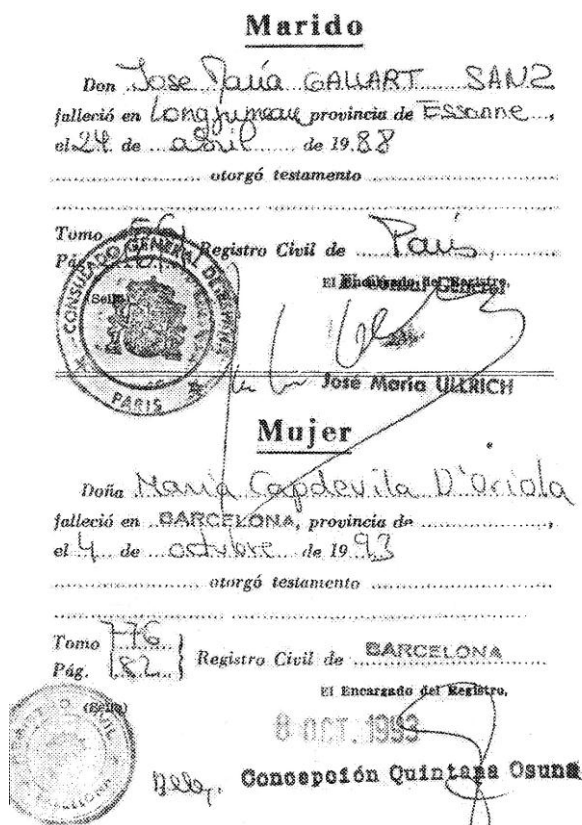 Marido
Don Jose María GALLART SANZ
falleció en Longjumeau provincia de Essonne,
el 24 de abril de 1988
otorgó testamento
Tomo
Pág.
Registro Civil de París,
El Encargado del Registro,
(Sello)
CONSULADO GENERAL DE ESPAÑA
PARIS
José María ULLRICH
Mujer
Doña María Capdevila D'Oriola
falleció en BARCELONA, provincia de
el 4 de octubre de 1993
otorgó testamento
Tomo 776
Pág. 82
Registro Civil de BARCELONA
El Encargado del Registro,
(Sello)
8 OCT. 1993
Concepción Quintana Osuna